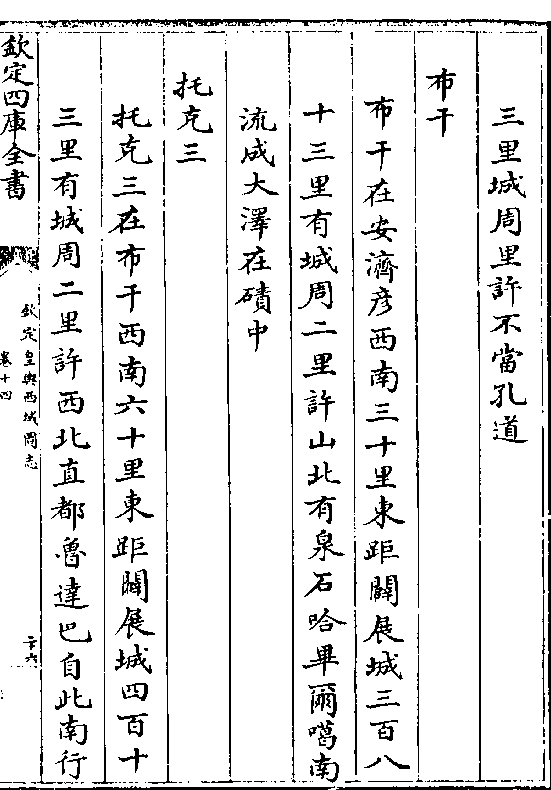 三里城周里許不當孔道
布干
布干在安濟彦西南三十里東距闢展城三百八
十三里有城周二里許山北有泉石哈畢爾噶南
流成大澤在磧中
托克三
托克三在布干西南六十里東距闢展城四百十
三里有城周二里許西北直都魯達巴自此南行
欽定四庫全書
欽定皇輿西域圖志
卷十四
二十六